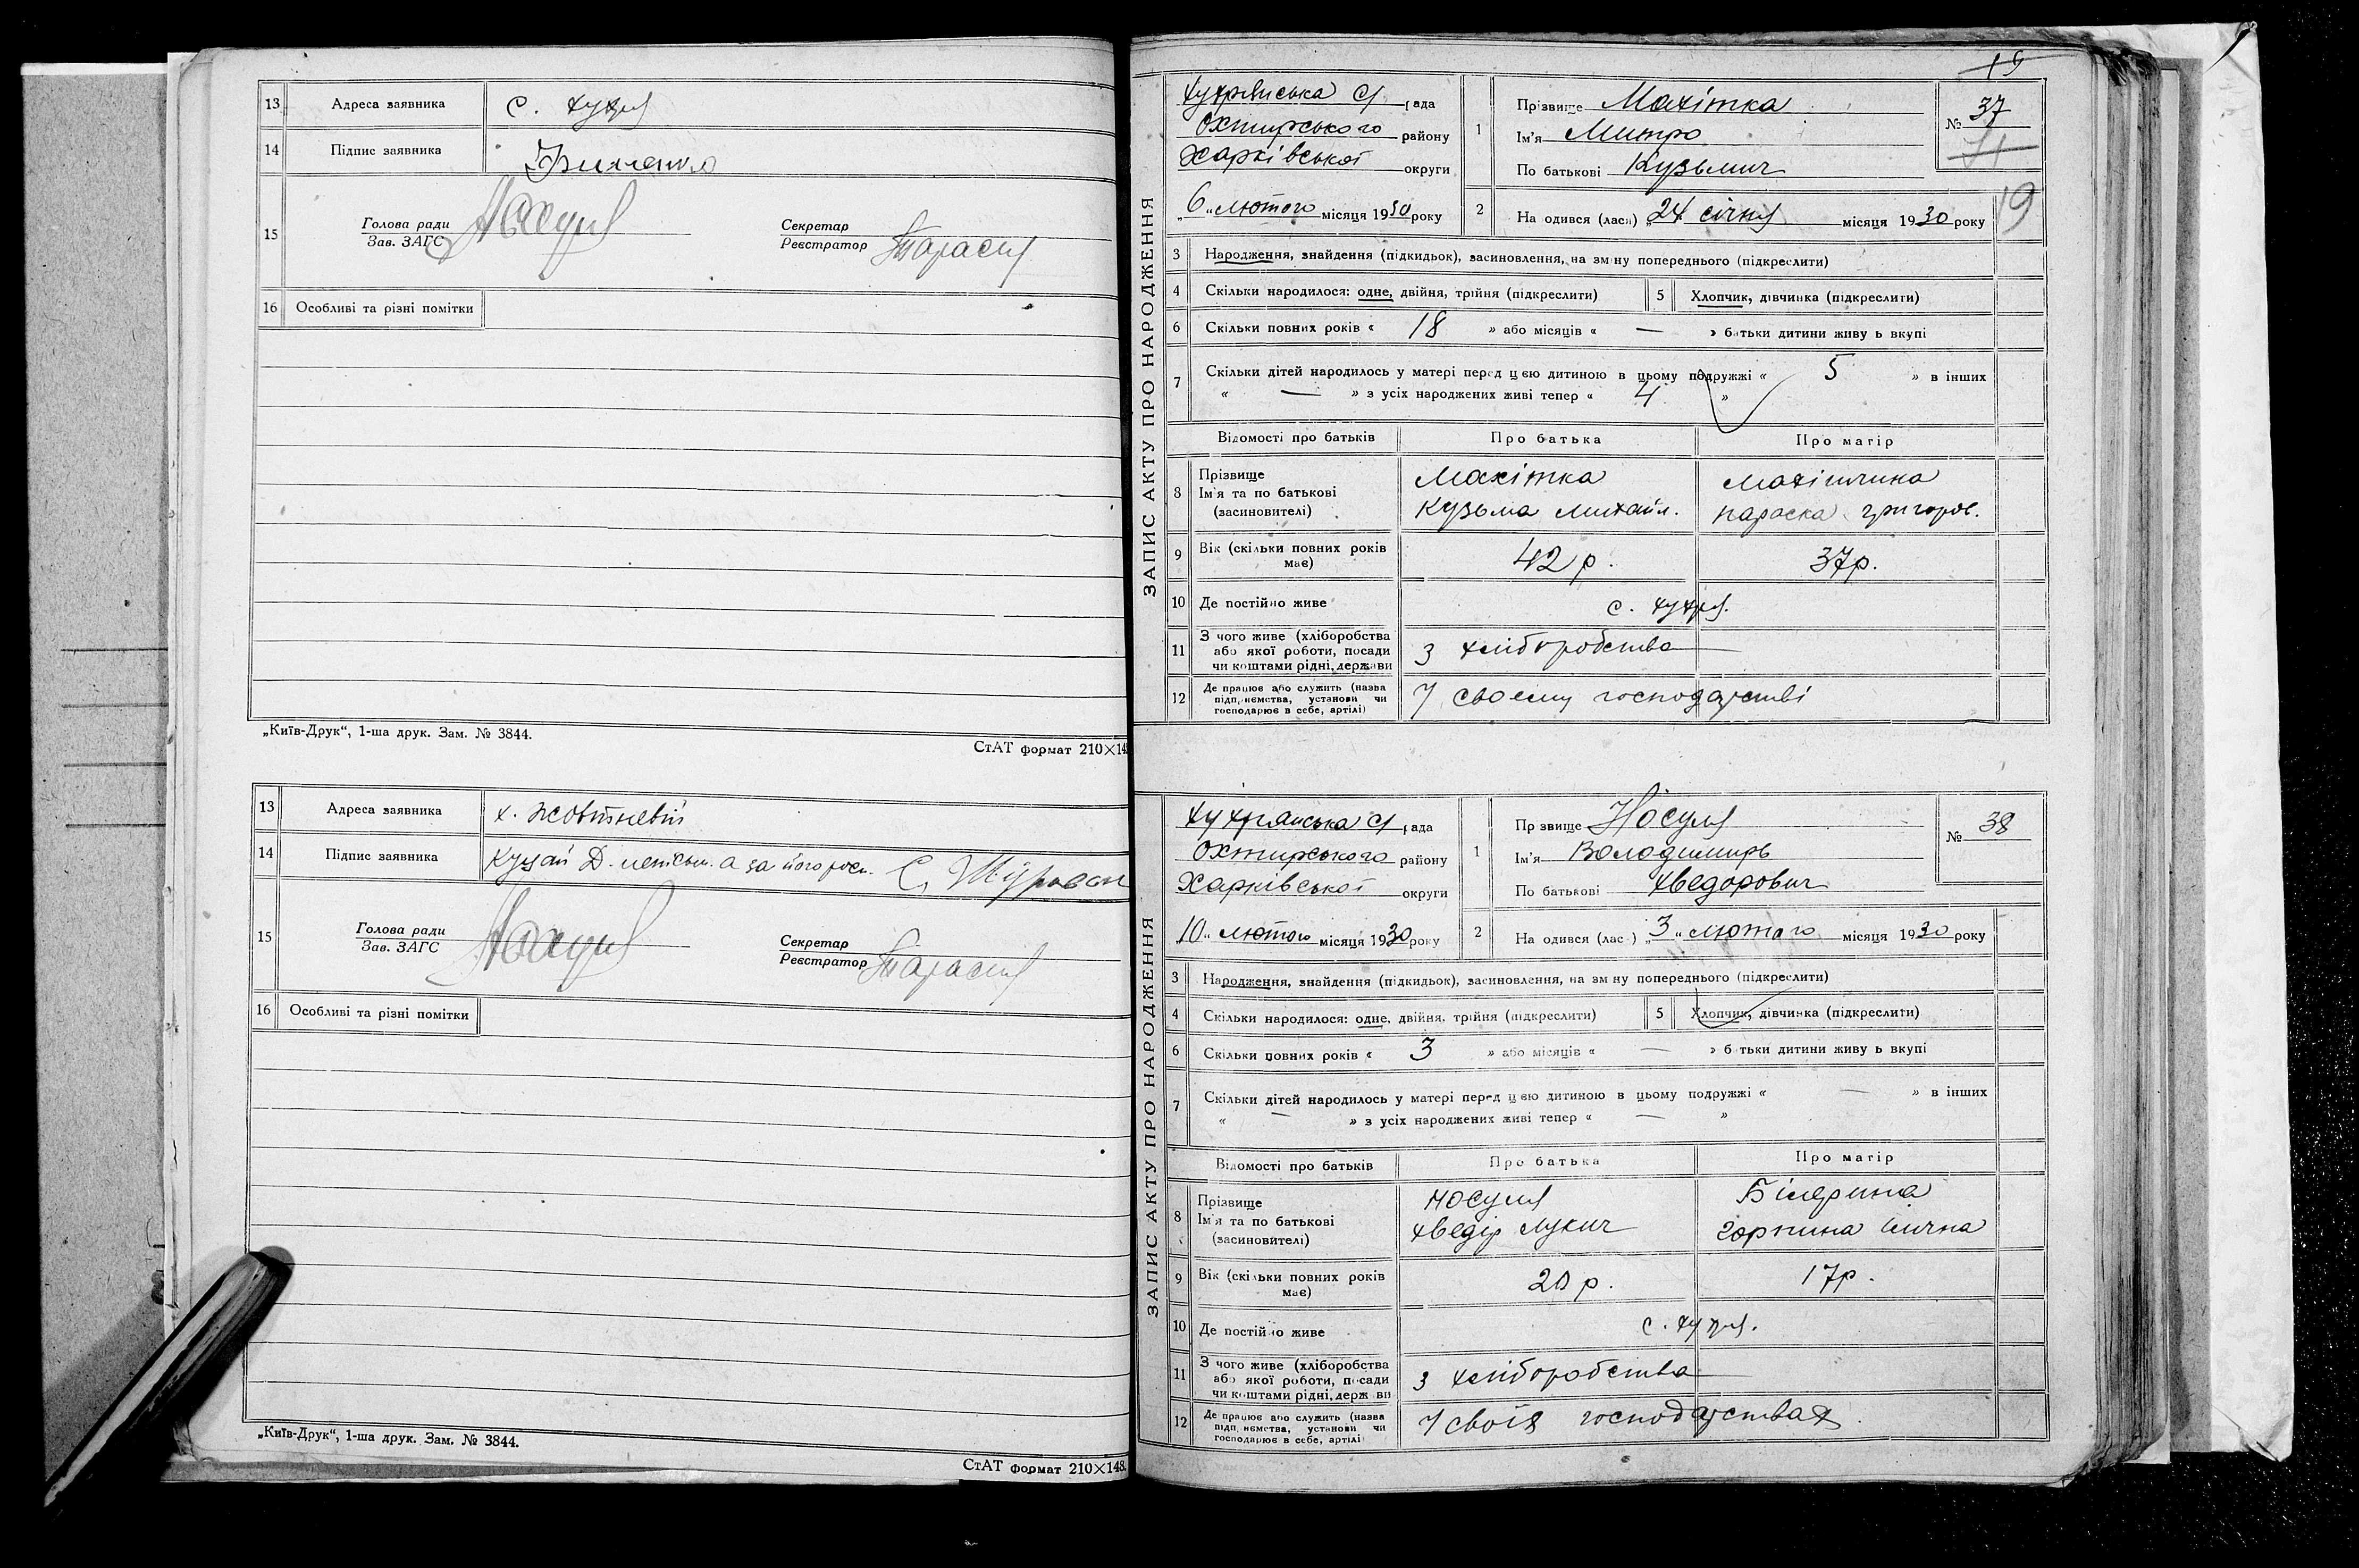 13 Адреса заявника с. Хухря
14 Підпис заявника
15 Голова ради Секретар
Зав. ЗАГС Реєстратор Тарасия
16 Особливі та різні помітки
„Київ-Друк“, 1-ша друк. Зам. № 3844.
СтАТ формат 210×14
13 Адреса заявника х. Жовтневий
14 Підпис заявника Куцай Д. неписьм. а за його росп. С.
15 Голова ради Секретар
Зав. ЗАГС Реєстратор Тарасия
16 Особливі та різні помітки
„Київ-Друк“, 1-ша друк. Зам. № 3844.
СтАТ формат 210×148.
19
ЗАПИС АКТУ ПРО НАРОДЖЕННЯ
Хухрянська С/рада
Охтирського району
Харківської округи
„6“ лютого місяця 1930 року
1 Прізвище Махітка
Ім'я Митро
По батькові Кузьмич
№ 37
71
19
2 На одився (лася) „24 січня місяця 1930 року
3 Народження, знайдення (підкидьок), засиновлення, на зм ну попереднього (підкреслити)
4 Скільки народилося: одне, двійня, трійня (підкреслити) 5 Хлопчик, дівчинка (підкреслити)
6 Скільки повних років « 18 » або місяців « — » батьки дитини живу ь вкупі
7 Скільки дітей народилось у матері перед цією дитиною в цьому подружжі « 5 » в інших
« — » з усіх народжених живі тепер « 4 »
Відомості про батьків Про батька Про матір
8 Прізвище
Ім'я та по батькові
(засиновителі)
Махітка
Кузьма Михайл.
Махітчина
Параска Григоров.
9 Вік (скільки повних років
має) 42 р. 37р.
10 Де постійно живе с. Хухря.
11 З чого живе (хліборобства
або якої роботи, посади
чи коштами рідні, держави
З хліборобства
12 Де працює або служить (назва
підприємства, установи чи
господарює в себе, артілі)
У своєму господарстві
ЗАПИС АКТУ ПРО НАРОДЖЕННЯ
Хухрянська С/рада
Охтирського району
Харківської округи
„10“ лютого місяця 1930 року
1 Пр звище Носуля
Ім'я Володимирь
По батькові Хведорович
№ 38
2 На одився (лас ) „3“ лютого місяця 1930 року
3 Народження, знайдення (підкидьок), засиновлення, на зм ну попереднього (підкреслити)
4 Скільки народилося: одне, двійня, трійня (підкреслити) 5 Хлопчик, дівчинка (підкреслити)
6 Скільки повних років « 3 » або місяців « — » батьки дитини живу ь вкупі
7 Скільки дітей народилось у матері перед цією дитиною в цьому подружжі « — » в інших
« — » з усіх народжених живі тепер « — »
Відомості про батьків Про батька Про матір
8 Прізвище
Ім'я та по батькові
(засиновителі)
Носуля
Хведір Лукич
Білерина
Горпина Ілічна
9 Вік (скільки повних років
має) 20 р. 17р.
10 Де постійно живе с. Хухря.
11 З чого живе (хліборобства
або якої роботи, посади
чи коштами рідні, держави
З хліборобства
12 Де працює або служить (назва
підприємства, установи чи
господарює в себе, артілі
У своїх господарствах